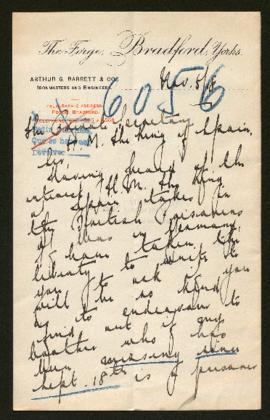 The Forge, Bradford, Yorks.
ARTHUR G. BARRETT & CO.
IRONMASTERS AND ENGINEERS
Nov. 5/
6056
TELEGRAPHIC ADDRESS
FORGE BRADFORD.
The Private Secretary
H.M. The King of Spain,
Sir,
Having heard of the
interest H.M. The King
of Spain takes in
the British Prisoners
of War in Germany,
I have taken the
liberty to write to
you to ask if you
will be so kind
as to endeavour to
find out if my
brother who has
been missing since
Sept. 18th is a prisoner